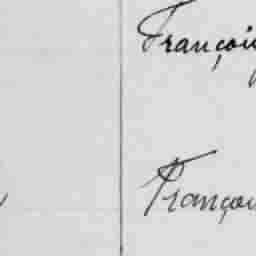 Françoi
Françoi